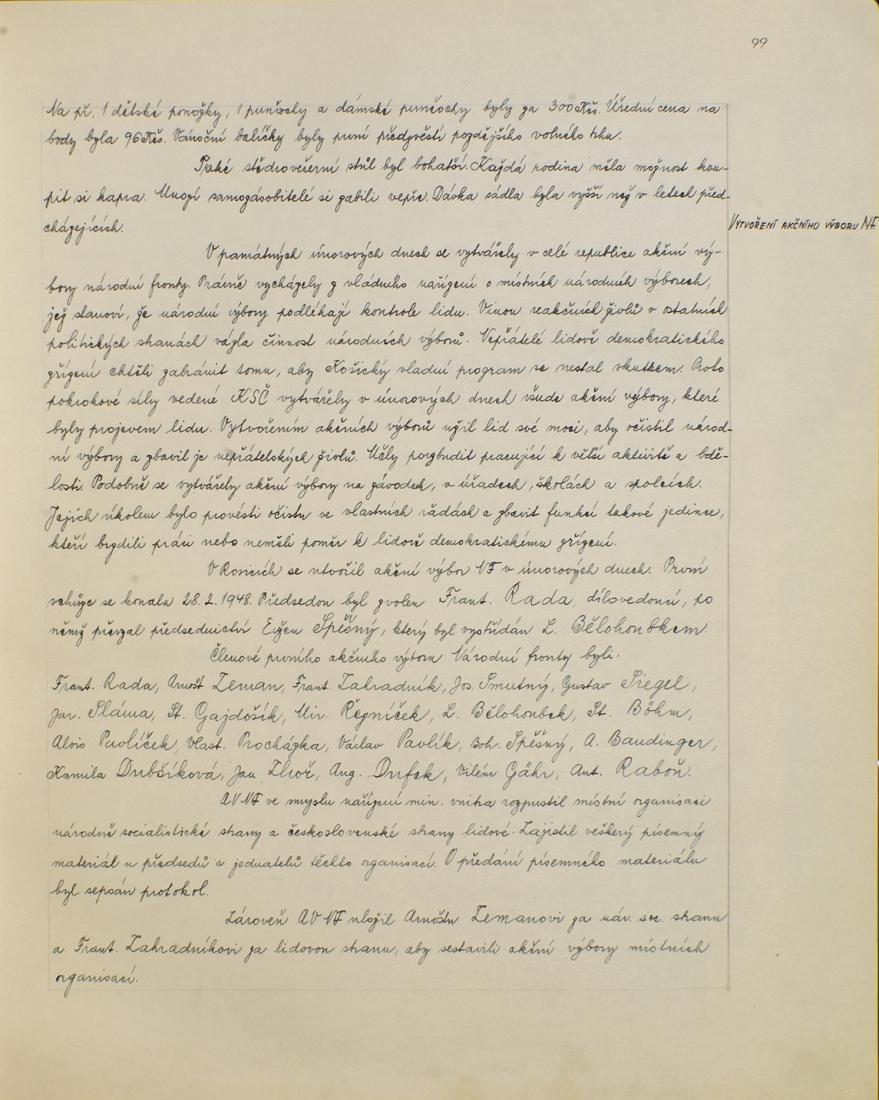 99
Na př. 1 dětské ponožky, 1 punčochy a dámské punčochy byly za 300 Kčs. Úřední cena na
body byla 96 Kčs. Vánoční balíčky byly první předzvěstí pozdějšího volného trhu.
Také štědrovečerní stůl byl bohatší. Každá rodina měla možnost kou-
pit si kapra. Mnozí samozásobitelé si zabili vepře. Dávka sádla byla vyšší než v letech před-
cházejících.
Vytvoření akčního výboru NF
V památných únorových dnech se vytvářely v celé republice akční vý-
bory národní fronty. Právně vycházely z vládního nařízení o místních národních výborech,
jež stanoví, že národní výbory podléhají kontrole lidu. Vinou reakčních živlů v ostatních
politických stranách vázla činnost národních výborů. Nepřátelé lidově demokratického
zřízení chtěli zabránit tomu, aby Košický vládní program se nestal skutkem. Proto
pokrokové síly vedené KSČ vytvářely v únorových dnech všude akční výbory, které
byly projevem lidu. Vytvořením akčních výborů užil lid své moci, aby očistil národ-
ní výbory a zbavil je nepřátelských živlů. Měly povzbudit pracující k větší aktivitě a bdě-
losti. Podobně se vytvářely akční výbory na závodech, v úřadech, školách a spolcích.
Jejich úkolem bylo provésti očistu ve vlastních řadách a zbavit funkcí takové jedince,
kteří brzdili práci nebo neměli poměr k lidově demokratickému zřízení.
V Rosicích se utvořil akční výbor NF v únorových dnech. První
schůze se konala 28.2.1948. Předsedou byl zvolen Frant. Rada, dílovedoucí, po
němž převzal předsednictví Evžen Spěšný, který byl vystřídán L. Bělohoubkem.
Členové prvního akčního výboru Národní fronty byli:
Frant. Rada, Arnošt Zeman, Frant. Zahradník, Jos. Smutný, Gustav Siegel,
Jar. Sláma, St. Gajdošík, Mir. Řezníček, L. Bělohoubek, St. Böhm,
Alois Pavlíček, Vlast. Procházka, Václav Pavlík, Boh. Spěšný, A. Baudinger,
Kamila Dubšíková, Jan Zhoř, Aug. Dufek, Vilém Gähr, Ant. Raboň.
AV NF ve smyslu nařízení min. vnitra rozpustil místní organisaci
národně socialistické strany a československé strany lidové. Zajistil veškerý písemný
materiál u předsedů a jednatelů těchto organisací. O předání písemného materiálu
byl sepsán protokol.
Zároveň AV NF uložil Arnoštu Zemanovi za nár. soc. stranu
a Frant. Zahradníkovi za lidovou stranu, aby sestavili akční výbory místních
organisací.